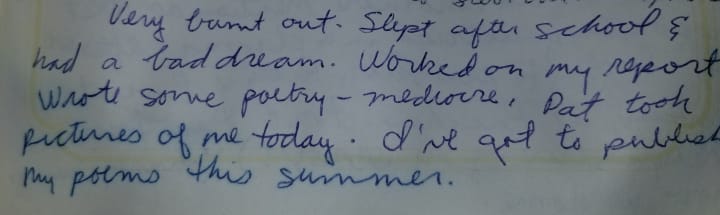 Very burnt out. Slept after school &
had a bad dream. Worked on my report
Wrote some poetry – mediocre. Pat took
pictures of me today. I've got to publish
my poems this summer.